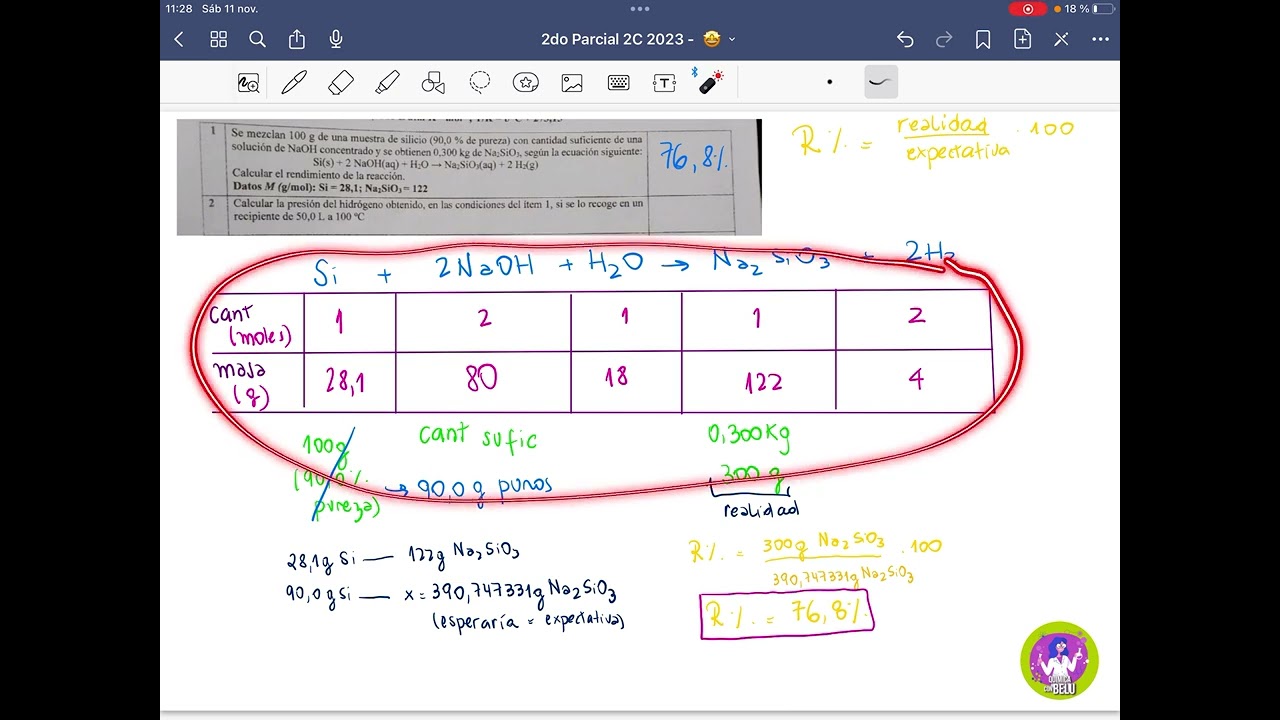 11:28 Sáb 11 nov.
18 %
2do Parcial 2C 2023 - 🤩
1 Se mezclan 100 g de una muestra de silicio (90,0 % de pureza) con cantidad suficiente de una
solución de NaOH concentrado y se obtienen 0,300 kg de Na₂SiO₃, según la ecuación siguiente:
Si(s) + 2 NaOH(aq) + H₂O → Na₂SiO₃(aq) + 2 H₂(g)
Calcular el rendimiento de la reacción.
Datos M (g/mol): Si = 28,1; Na₂SiO₃ = 122
76,8%
2 Calcular la presión del hidrógeno obtenido, en las condiciones del ítem 1, si se lo recoge en un
recipiente de 50,0 L a 100 ºC
R% = realidad / expectativa . 100
Si + 2NaOH + H₂O → Na₂SiO₃ + 2H₂
Cant (moles) 1 2 1 1 2
masa (g) 28,1 80 18 122 4
100g cant sufic 0,300Kg
(90,0% → 90,0 g puros 300 g
pureza) realidad
28,1g Si — 122g Na₂SiO₃
90,0g Si — x = 390,747331g Na₂SiO₃
(esperaría = expectativa)
R% = 300g Na₂SiO₃ / 390,747331g Na₂SiO₃ . 100
R% = 76,8%
QUÍMICA
CON BELU